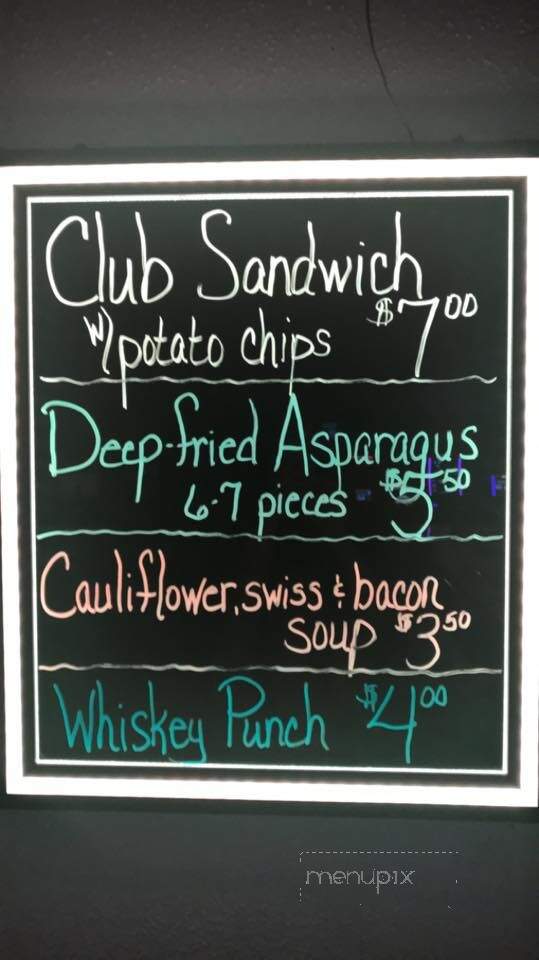 Club Sandwich
w/potato chips $7.00
Deep-fried Asparagus
6-7 pieces $5.50
Cauliflower, swiss & bacon
soup $3.50
Whiskey Punch $4.00
menupix